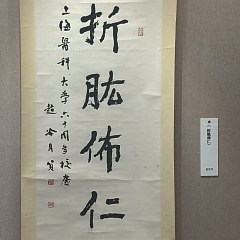 折肱佈仁
上海醫科大学六十周年校慶
趙冷月賀